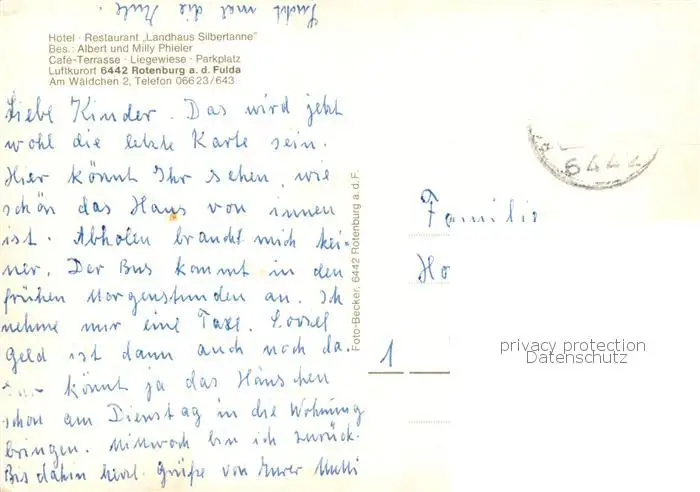 Sucht mal die
Hotel · Restaurant „Landhaus Silbertanne"
Bes.: Albert und Milly Phieler
Café-Terrasse · Liegewiese · Parkplatz
Luftkurort 6442 Rotenburg a. d. Fulda
Am Wäldchen 2, Telefon 06623/643
Liebe Kinder. Das wird jetzt
wohl die letzte Karte sein.
Hier könnt Ihr sehen, wie
schön das Haus von innen
ist. Abholen braucht mich kei-
ner. Der Bus kommt in den
frühen Morgenstunden an. Ich
nehme mir eine Taxe. Soviel
Geld ist dann auch noch da.
könnt ja das Häuschen
schon am Dienstag in die Wohnung
bringen. Mittwoch bin ich zurück.
Bis dahin herzl. Grüße von Eurer Mutti
Foto-Becker, 6442 Rotenburg a. d. F.
6442
Familie
Ho
1
privacy protection
Datenschutz